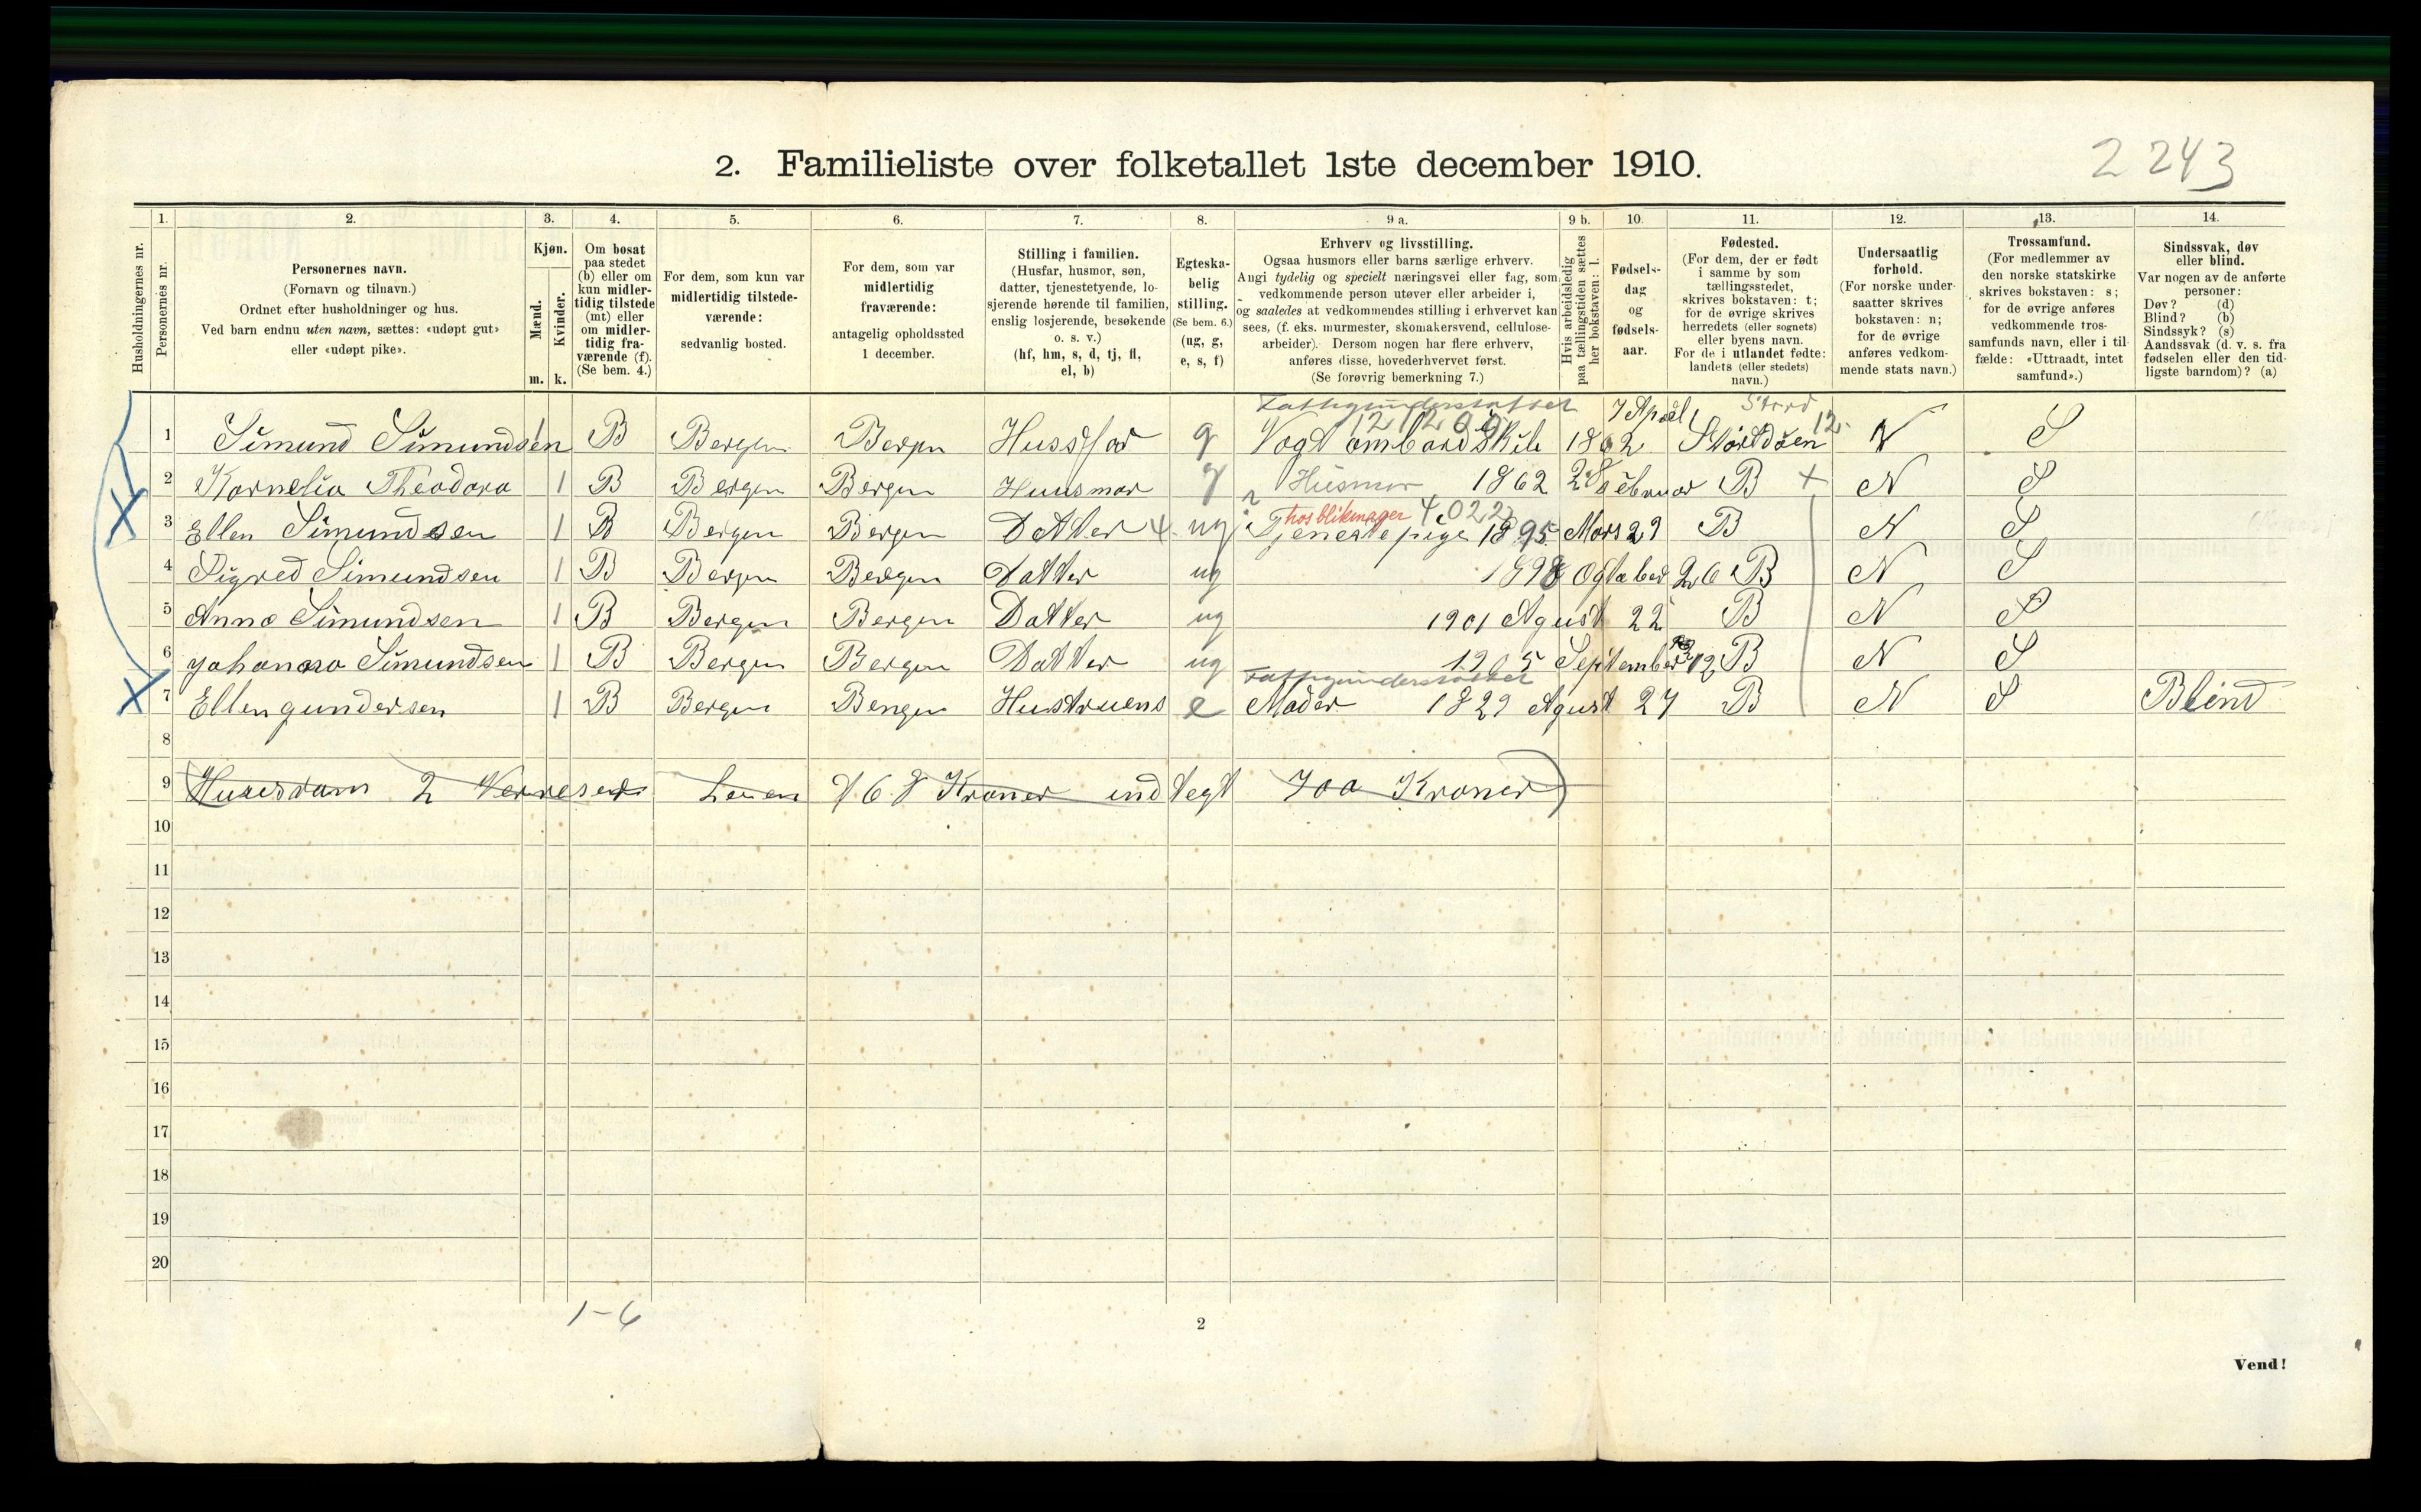 2. Familieliste over folketallet 1ste december 1910.
2243
1. 2. 3. 4. 5. 6. 7. 8. 9 a. 9 b. 10. 11. 12. 13. 14.
Husholdningernes nr.
Personernes nr.
Personernes navn.
(Fornavn og tilnavn.)
Ordnet efter husholdninger og hus.
Ved barn endnu uten navn, sættes: «udøpt gut»
eller «udøpt pike».
Kjøn.
Mænd.
Kvinder.
m. k.
Om bosat
paa stedet
(b) eller om
kun midler-
tidig tilstede
(mt) eller
om midler-
tidig fra-
værende (f).
(Se bem. 4.)
For dem, som kun var
midlertidig tilstede-
værende:
sedvanlig bosted.
For dem, som var
midlertidig
fraværende:
antagelig opholdssted
1 december.
Stilling i familien.
(Husfar, husmor, søn,
datter, tjenestetyende, lo-
sjerende hørende til familien,
enslig losjerende, besøkende
o. s. v.)
(hf, hm, s, d, tj, fl,
el, b)
Egteska-
belig
stilling.
(Se bem. 6.)
(ug, g,
e, s, f)
Erhverv og livsstilling.
Ogsaa husmors eller barns særlige erhverv.
Angi tydelig og specielt næringsvei eller fag, som
vedkommende person utøver eller arbeider i,
og saaledes at vedkommendes stilling i erhvervet kan
sees, (f. eks. murmester, skomakersvend, cellulose-
arbeider). Dersom nogen har flere erhverv,
anføres disse, hovederhvervet først.
(Se forøvrig bemerkning 7.)
Hvis arbeidsledig
paa tællingstiden sættes
her bokstaven: l.
Fødsels-
dag
og
fødsels-
aar.
Fødested.
(For dem, der er født
i samme by som
tællingsstedet,
skrives bokstaven: t;
for de øvrige skrives
herredets (eller sognets)
eller byens navn.
For de i utlandet fødte:
landets (eller stedets)
navn.)
Undersaatlig
forhold.
(For norske under-
saatter skrives
bokstaven: n;
for de øvrige
anføres vedkom-
mende stats navn.)
Trossamfund.
(For medlemmer av
den norske statskirke
skrives bokstaven: s;
for de øvrige anføres
vedkommende tros-
samfunds navn, eller i til-
fælde: «Uttraadt, intet
samfund».)
Sindssvak, døv
eller blind.
Var nogen av de anførte
personer:
Døv? (d)
Blind? (b)
Sindssyk? (s)
Aandssvak (d. v. s. fra
fødselen eller den tid-
ligste barndom)? (a)
Fattigunderstøttet 7 April Stord
1 Simund Simundsen 1 B Bergen Bergen Hussfar g Vogt ombord Skib 1862 Stordøen 12 N S
2 Kornelia Theodora 1 B Bergen Bergen Huusmor g Husmor 1862 28 februar B + N S
hos blikmager 4.022
3 Ellen Simundsen 1 B Bergen Bergen Datter ug Tjeneste pige 1895 Mars 29 B N S
4 Sigred Simundsen 1 B Bergen Bergen Datter ug 1898 Ogtober 26 B N S
5 Anna Simundsen 1 B Bergen Bergen Datter ug 1901 Agust 22 B N S
6 Johanna Simundsen 1 B Bergen Bergen Datter ug 1905 September 12 B N S
Fattigunderstøttet
7 Ellen gundersen 1 B Bergen Bergen Hustruens e Moder 1829 Agust 27 B N S Blind
8
9 2 Kroner indtegt 700 Kroner)
10
11
12
13
14
15
16
17
18
19
20
1-6
2
Vend!